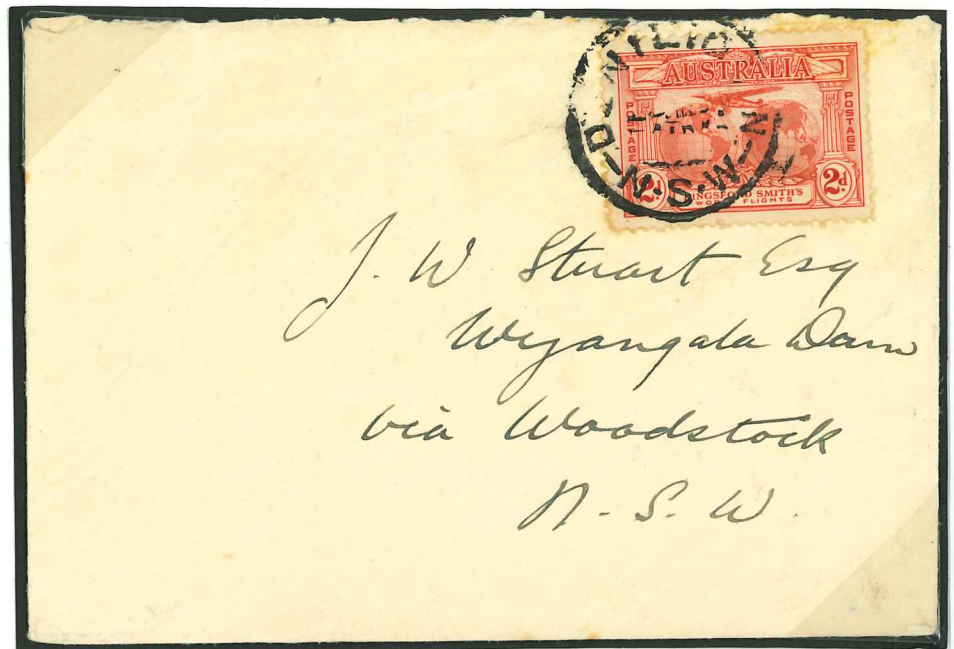 AUSTRALIA
POSTAGE
POSTAGE
2d
2d
KINGSFORD SMITH'S
WORLD FLIGHTS
DENILIQUIN
N.S.W
J. W Stuart Esq
Wyangala Dam
via Woodstock
N. S. W.